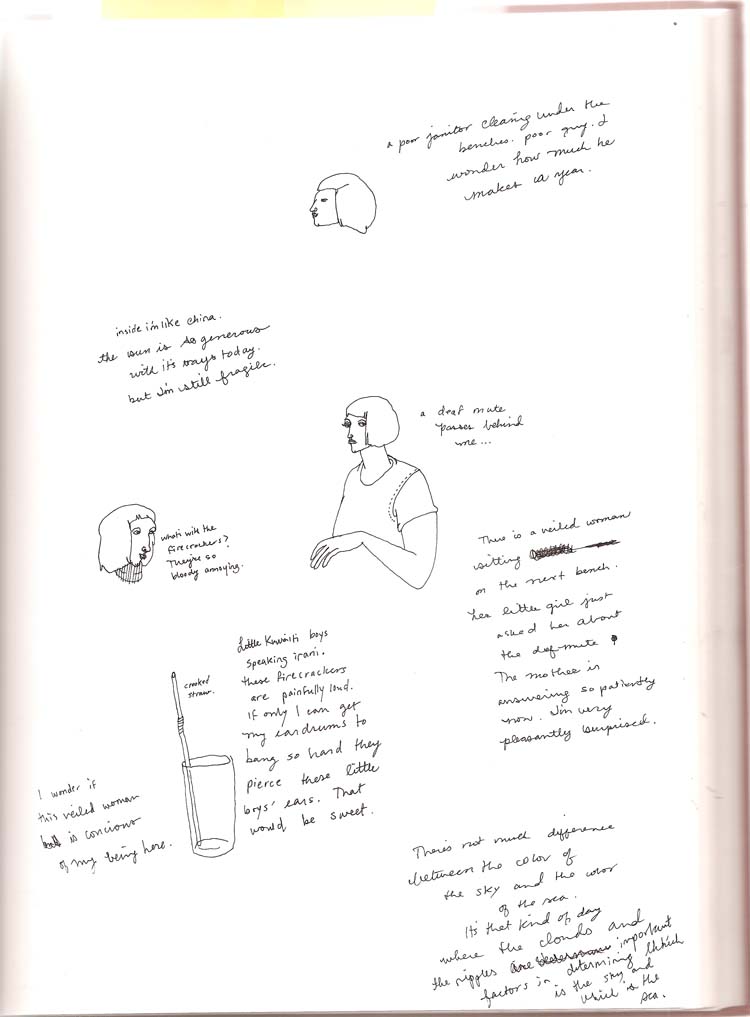 a poor janitor cleaning under the
benches. poor guy. I
wonder how much he
makes a year.
inside i'm like china.
the sun is so generous
with it's rays today.
but I'm still fragile.
a deaf mute
passes behind
me...
what's with the
firecrackers?
They're so
bloody annoying.
There is a veiled woman
sitting
on the next bench.
her little girl just
asked her about
the deaf-mute
The mother is
answering so patiently
now. I'm very
pleasantly surprised.
Little Kuwaiti boys
speaking irani.
these firecrackers
are painfully loud.
if only I can get
my eardrums to
bang so hard they
pierce these little
boys' ears. That
would be sweet.
crooked
straw.
I wonder if
this veiled woman
is concious
of my being here.
There's not much difference
between the color of
the sky and the color
of the sea.
It's that kind of day
where the clouds and
the ripples are important
factors in determining which
is the sky and
which is the
sea.